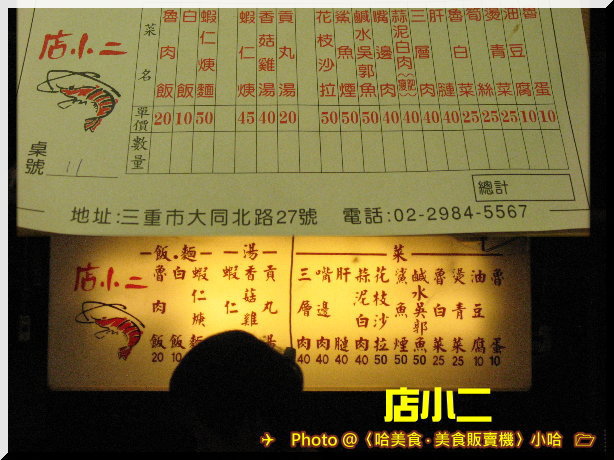 店小二
菜名
單價
數量
魯肉飯 20
白飯 10
蝦仁焿麵 50
蝦仁焿 45
香菇雞湯 40
貢丸湯 20
花枝沙拉 50
鯊魚煙 50
鹹水吳郭魚 50
嘴邊肉 40
蒜泥白肉 40
三層肉 40
肝 40
魯白菜 25
筍絲 25
燙青菜 25
油豆腐 10
魯蛋 10
桌號 11
總計
地址:三重市大同北路27號 電話:02-2984-5567
店小二
飯.麵
魯肉飯 20
白飯 10
蝦仁焿麵
湯
蝦仁
香菇雞
貢丸湯
菜
三層肉 40
嘴邊肉 40
肝 40
蒜泥白肉 40
花枝沙拉 50
鯊魚煙 50
鹹水吳郭魚 50
魯白菜 25
燙青菜 25
油豆腐 10
魯蛋 10
店小二
Photo @〈哈美食‧美食販賣機〉小哈